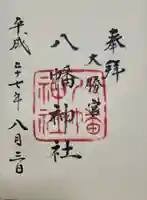 奉拝
大勝宮
八幡神社
平成二十七年八月三日